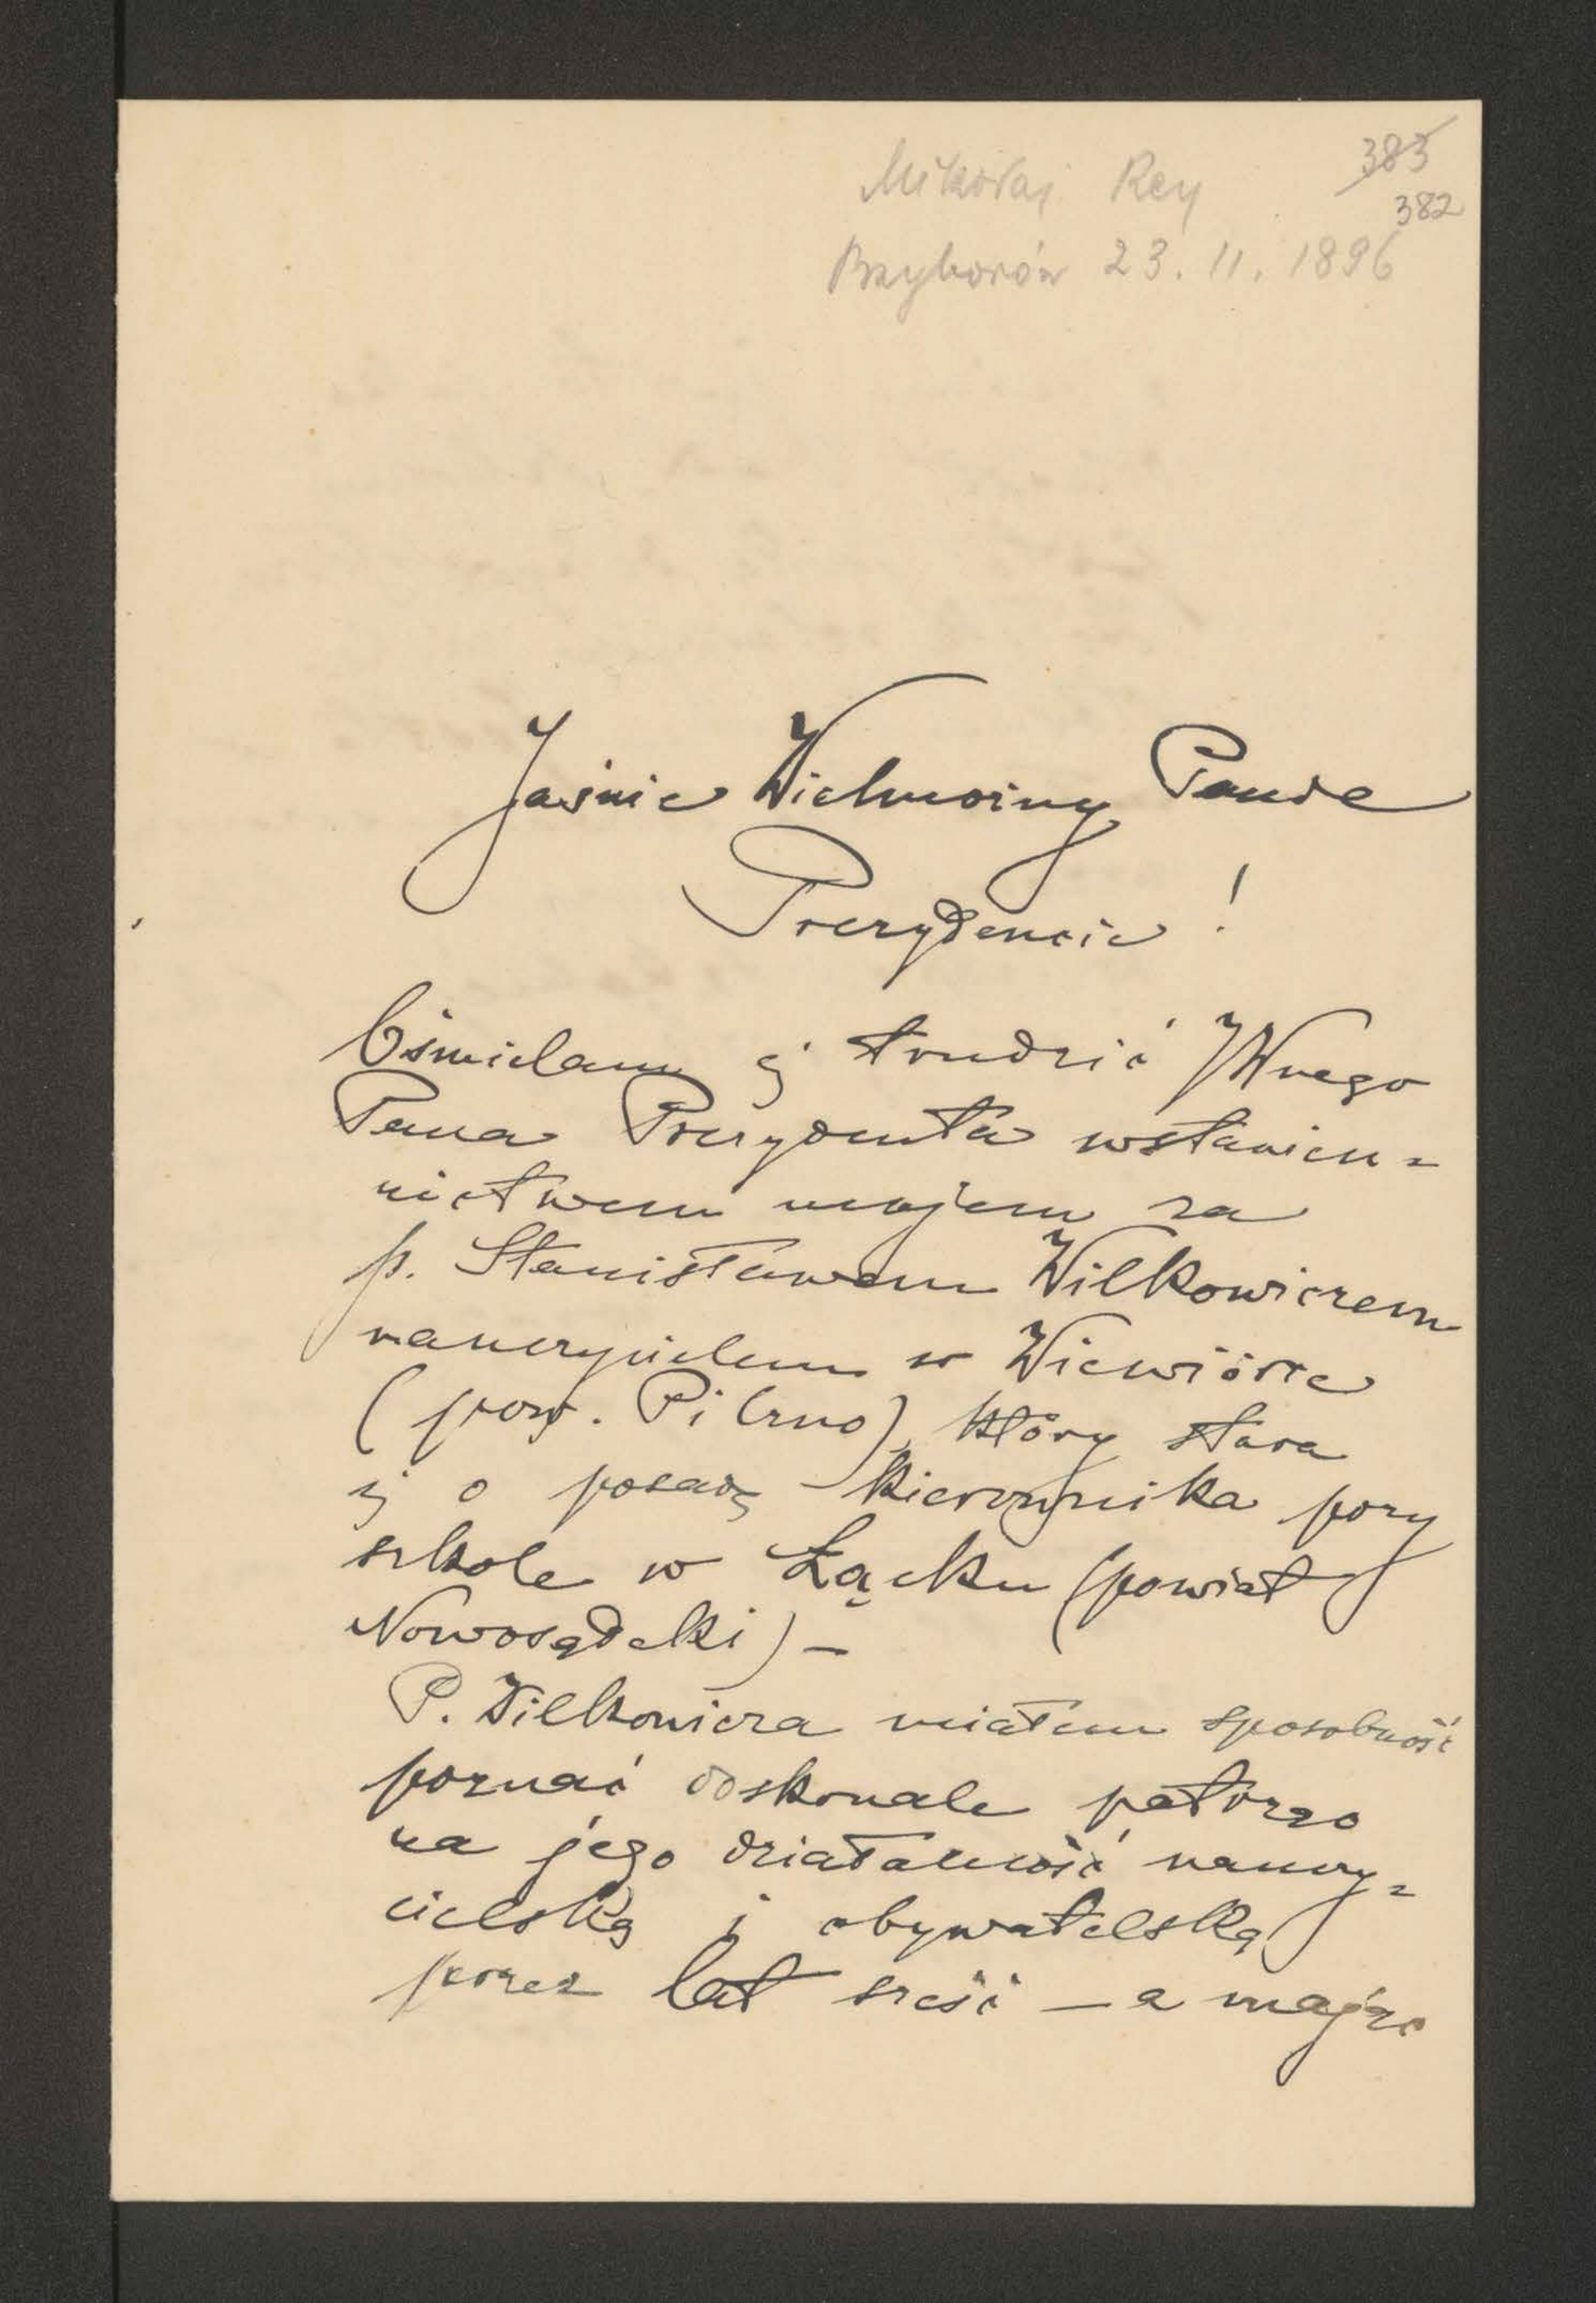 Mikołaj Rey 383
382
Przyborów 23. 11. 1896
Jaśnie Wielmożny Panie
Prezydencie !
Ośmielam się trudzić JWnego
Pana Prezydenta wstawien=
nictwem mojem za
p. Stanisławem Wilkowiczem
nauczycielem w Wiewiórce
(pow. Pilzno), który stara
się o posadę kierownika przy
szkole w Łącku (powiat
Nowosądecki) —
P. Wilkowicza miałem sposobność
poznać doskonale patrząc
na jego działalność nauczy=
cielską i obywatelską
przez lat sześć — a mając